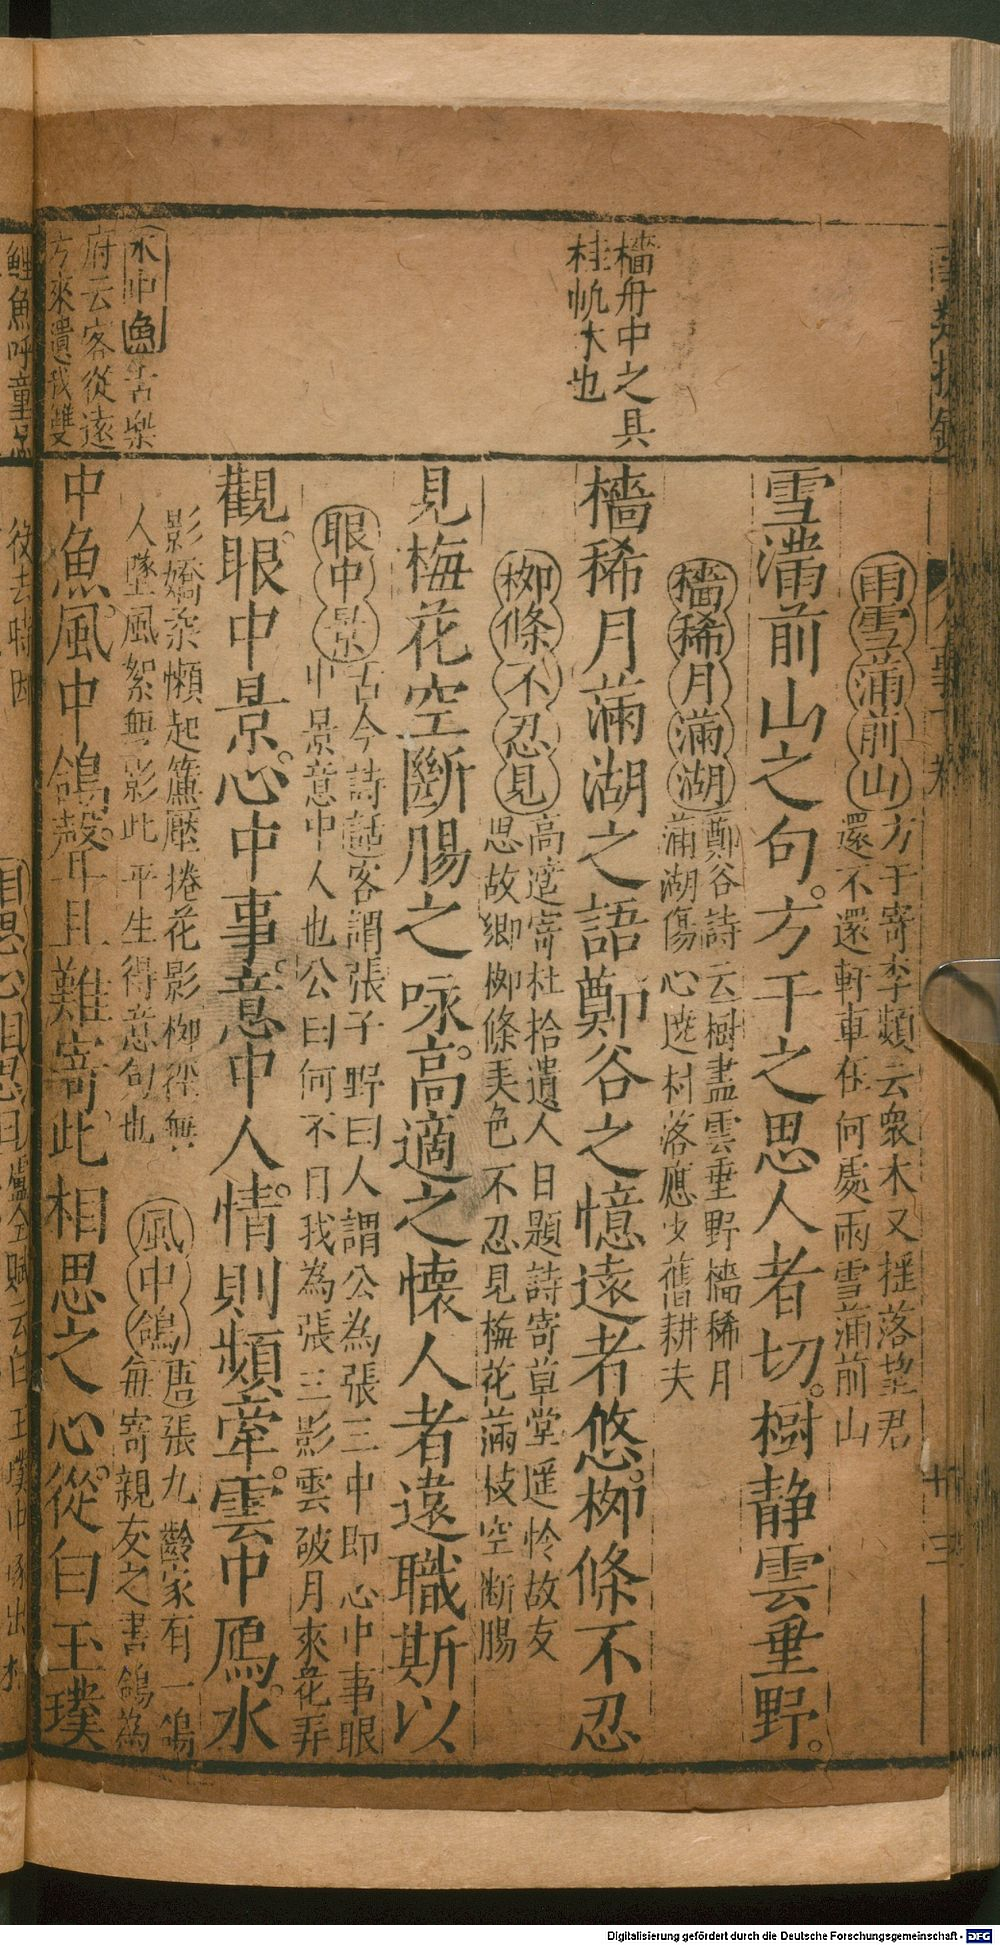 檣舟中之具
桂帆木也
水中魚古樂
府云客從遠
方來遺我雙
雨雪滿前山方干寄李頻云衆木又揺落望君
還不還軒車在何處雨雪滿前山
雪滿前山之句方干之思人者切樹静雲垂野
檣稀月滿湖鄭谷詩云樹盡雲垂野檣稀月
滿湖傷心遶村落應少舊耕夫
檣稀月滿湖之語鄭谷之憶遠者悠栁條不忍
栁條不忍見高適寄杜拾遺人日題詩寄草堂遥怜故友
思故鄉栁條美色不忍見梅花滿枝空斷腸
見梅花空斷腸之咏高適之懷人者遠職斯以
眼中景古今詩話客謂張子野曰人謂公為張三中即心中事眼
中景意中人也公曰何不目我為張三影雲破月來花弄
觀眼中景心中事意中人情則頻牽雲中鴈水
影嬌柔懶起簾壓捲花影栁徑無
人墜風絮無影此平生得意句也
風中鴿唐張九齡家有一鴿
毎寄親友之書鴿為
中魚風中鴿聲且難寄此相思之心從白玉璞
鯉魚呼童
後去時因
相思心相思曰盧仝賦云白玉璞中琢出
Digitalisierung gefördert durch die Deutsche Forschungsgemeinschaft - DFG